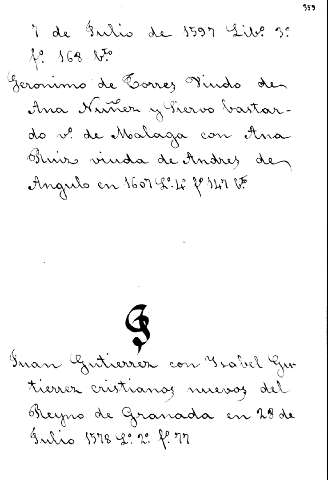 359
7 de Julio de 1597 Libº. 3º
fº. 168 vtº.
Geronimo de Torres Viudo de
Ana Nuñez y Siervo bastar-
do vº. de Malaga con Ana
Ruiz viuda de Andres de
Angulo en 1607 Lº. 4º fº 147 vtº.
G
Juan Gutierrez con Ysabel Gu
tierrez cristianos nuevos del
Reyno de Granada en 28 de
Julio 1578 Lº. 2º. fº. 77